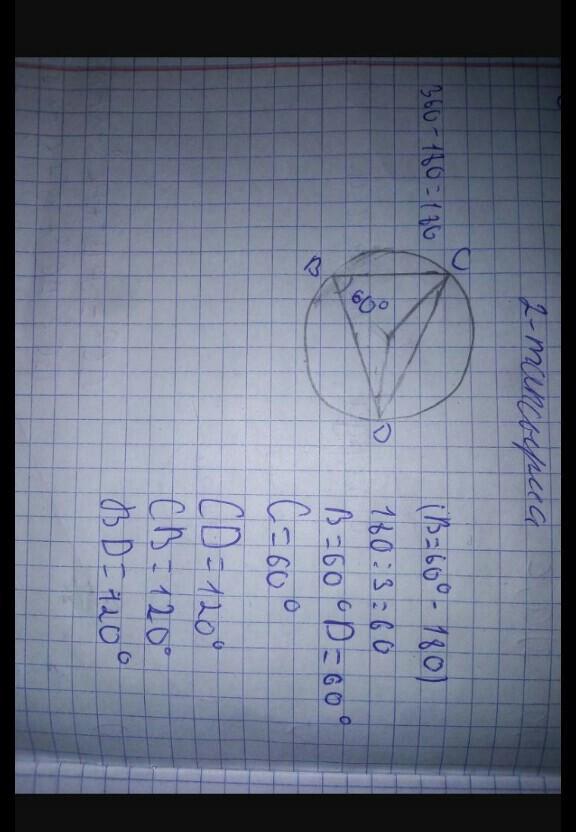 2-тапсырма
360-180=180
B
C
60°
D
(B=60°-180)
180:3=60
B=60° D=60°
C=60°
CD=120°
CB=120°
BD=120°